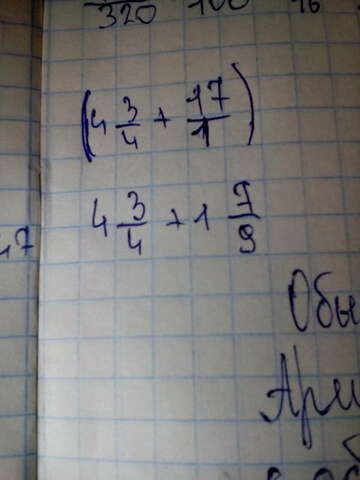 320 100 16
(4 3/4 + 17/1)
4 3/4 + 1 7/9
47
Обы
Ари